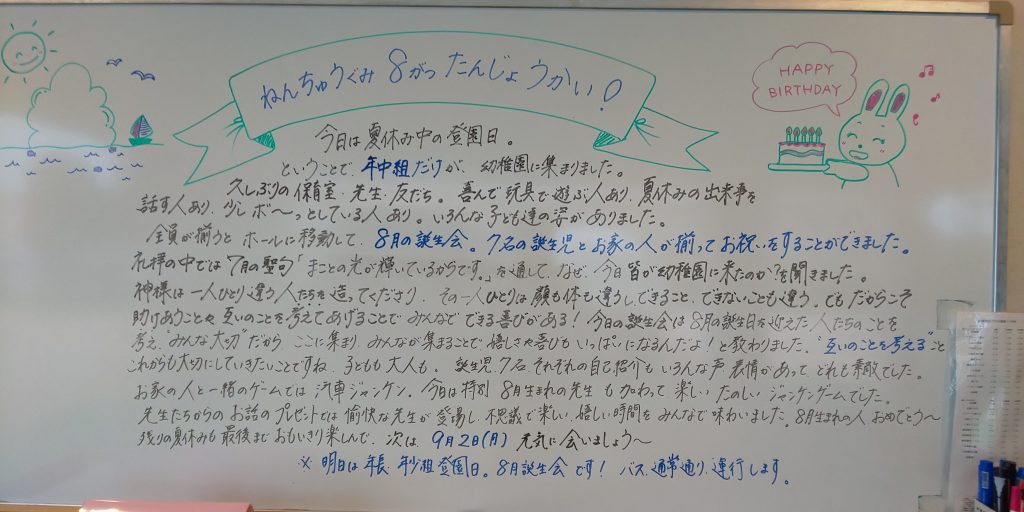 ねんちゅうぐみ 8がつ たんじょうかい!
HAPPY
BIRTHDAY
今日は夏休み中の登園日。
ということで、年中組だけが、幼稚園に集まりました。
久しぶりの保育室、先生、友だち。喜んで玩具で遊ぶ人あり、夏休みの出来事を
話す人あり、少しボ〜っとしている人あり。いろんな子ども達の姿がありました。
全員が揃うと ホールに移動して、8月の誕生会。7名の誕生児とお家の人が揃ってお祝いをすることができました。
礼拝の中では 7月の聖句「まことの光が輝いているからです。」を通して、なぜ、今日皆が幼稚園に来たのか?を聞きました。
神様は一人ひとり違う人たちを造ってくださり、その一人ひとりは顔も体も違うし、できること、できないことも違う。でも だからこそ
助けあうことや 互いのことを考えてあげることで みんなで できる喜びがある! 今日の誕生会は8月の誕生日を迎えた人たちのことを
考え、みんな大切"だから ここに集まり みんなが集まることで 嬉しさや喜びも いっぱいになるんだよ!と教わりました。"互いのことを考える"こと
これからも大切にしていきたいことですね、子どもも 大人も。 誕生児7名それぞれの自己紹介も いろんな声 表情があって どれも素敵でした。
お家の人と一緒のゲームでは 汽車ジャンケン。今日は特別 8月生まれの先生も加わって 楽しい たのしい ジャンケンゲームでした。
先生たちからのお話のプレゼントでは 愉快な先生が登場し、不思議で楽しい嬉しい時間を みんなで味わいました。8月生まれの人 おめでとう〜
残りの夏休みも最後まで おもいきり楽しんで、次は、9月2日(月) 元気に会いましょう〜
※明日は年長、年少組登園日。8月誕生会です! バス、通常通り、運行します。